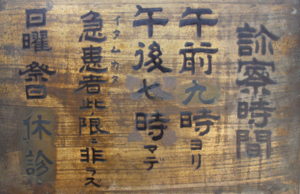 診察時間
午前九時ヨリ
午後七時マデ
急患者此ノ限ニ非ラズ
日曜祭日休診